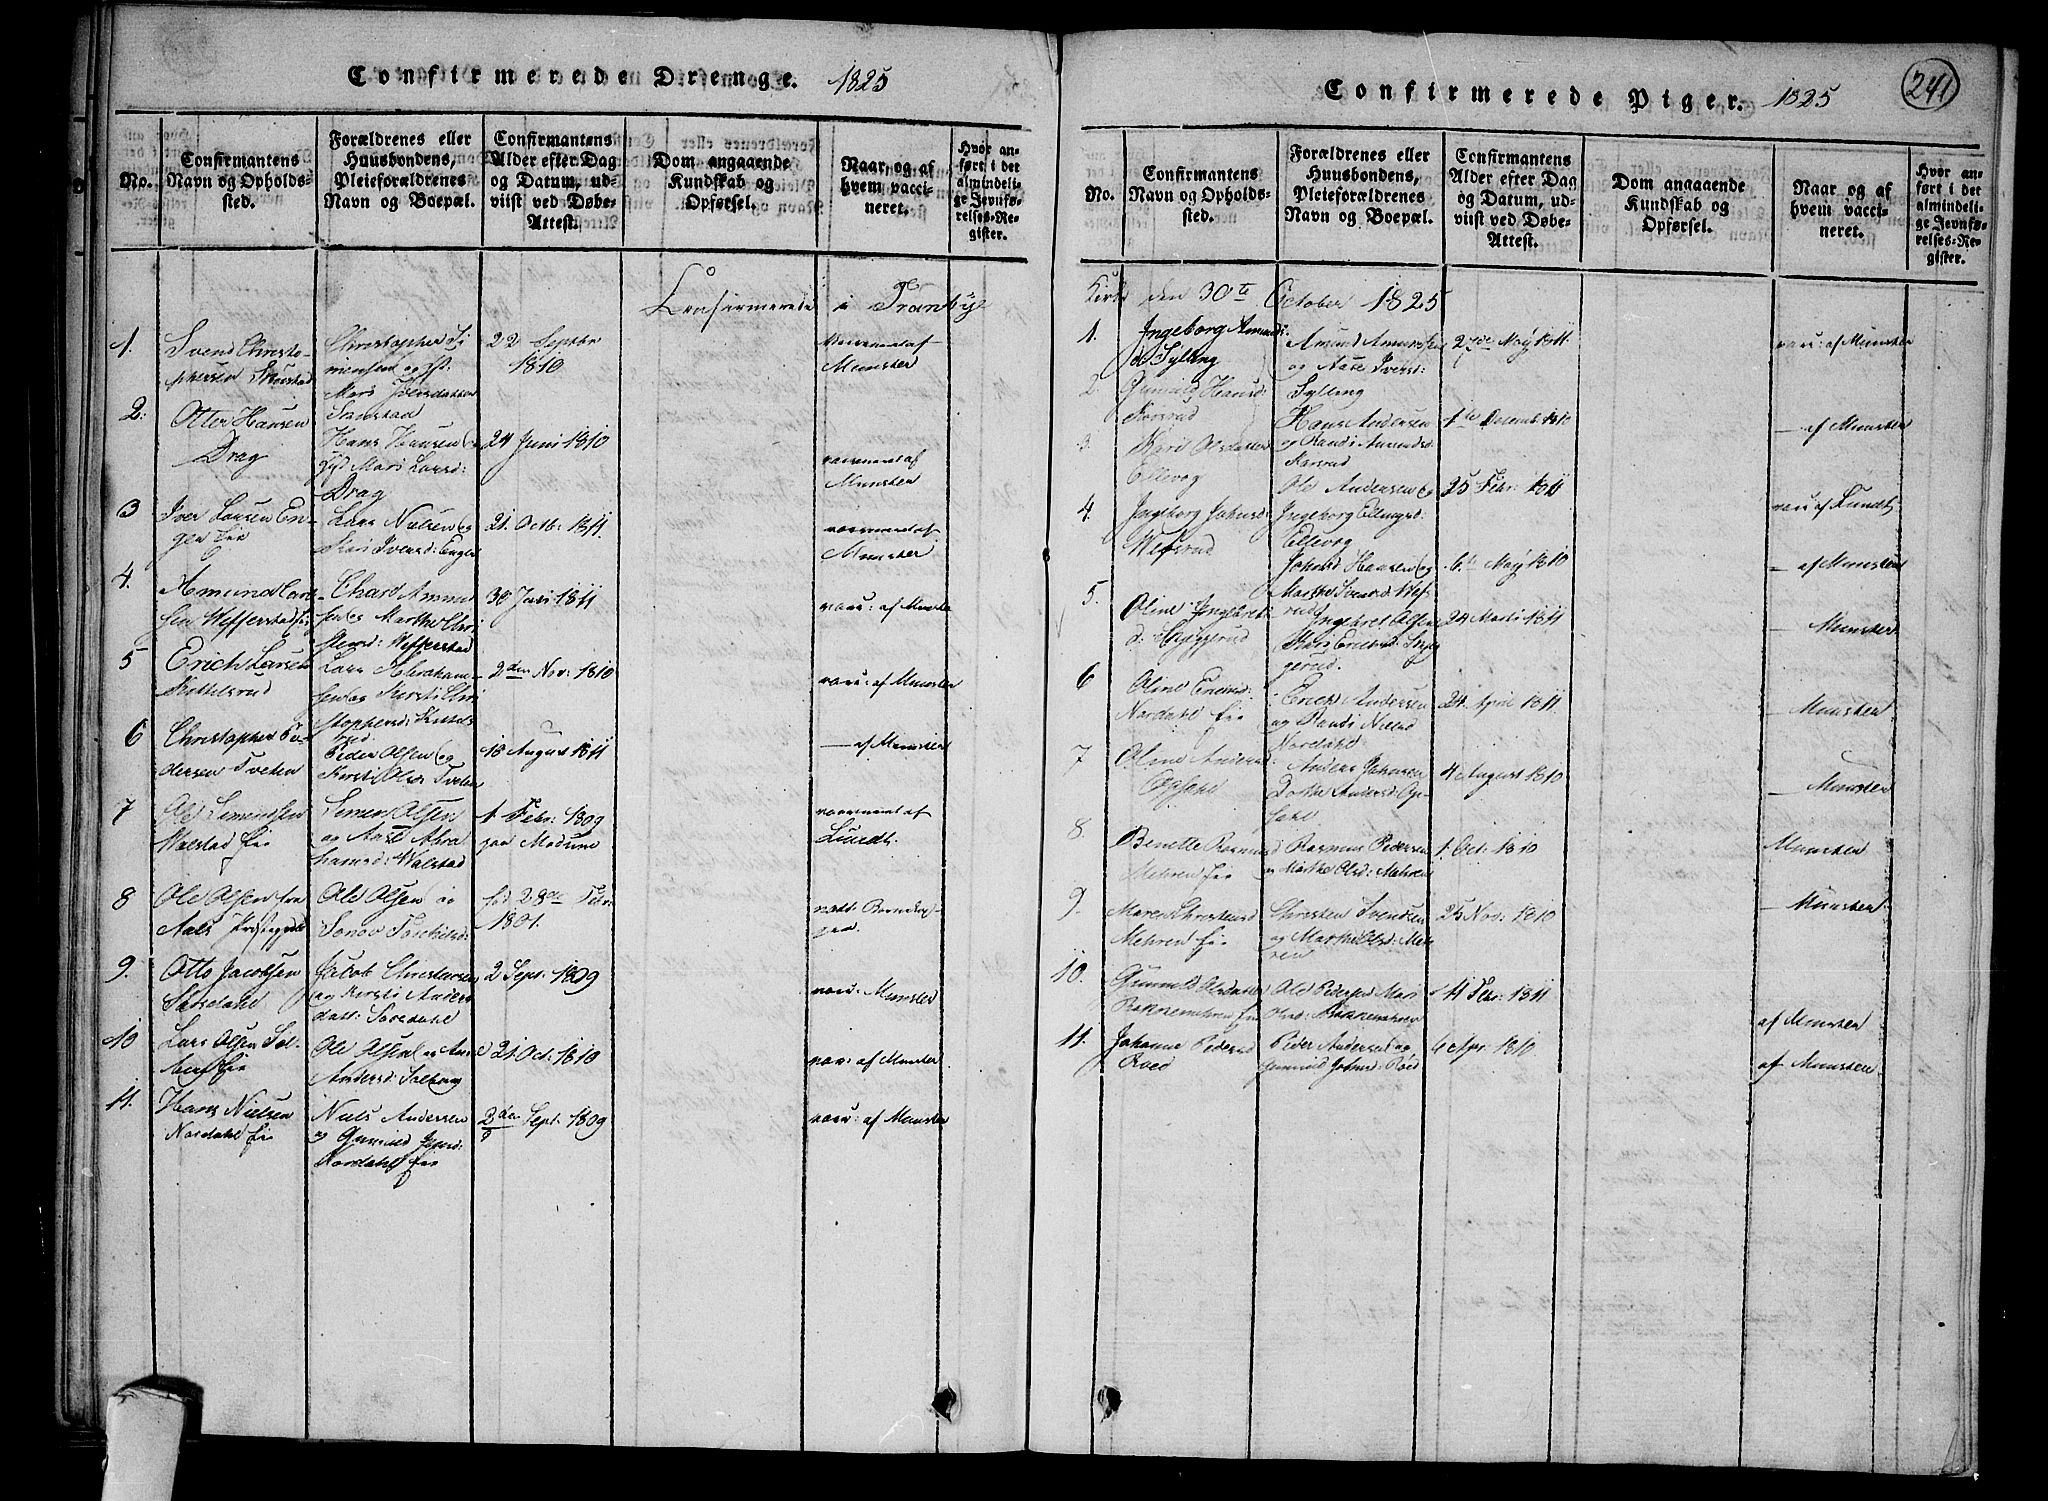 Confirmerede Drenge. 1825
No.
Confirmantens
Navn og Opholds-
sted.
Forældrenes eller
Huusbondens,
Pleieforældrenes
Navn og Boepæl.
Confirmantens
Alder efter Dag
og Datum, ud-
viist ved Døbe-
Attest.
Dom angaaende
Kundskab og
Opførsel.
Naar og af
hvem vacci-
neret.
Hvor an-
ført i det
almindeli-
ge Jevnfø-
relses-Re-
gister.
Confirmerede i Tranbye
1.
Svend Christo-
phersen
Christopher Si-
mensen og
22 Septbr
1810
vaccineret af
Munster
2.
Otter Hansen
Drag
Hans Hansen og
Mari Larsd:
Drag
24 Juni 1810
vaccineret af
Munster
3
Iver Larsen En-
gen Eie
Lars Nielsen og
Kari Iversd: Engen
21. Octb: 1811.
vaccineret af
Munster
4.
Amund
30 Juni 1811
vacc: af Munster
5
Erich Larsen
Lars Abraham-
sen og Kersti Chri
stophersd:
2den Nov: 1810
vacc: af Munster
6
Christopher Pe-
dersen Tveten
Peder Olsen og
Kersti Olsd: Tveten
18 August 1811
— af Munster
7
Ole Simensen
Walstad Eie
Simen Olsen
og Aase Abra
hamsd: Walstad
1 Febr: 1809
paa Modum
vaccineret af
Lundt.
8
Ole Olsen fra
Aals Præstegjeld
Ole Olsen og
fød 28de Febr:
1801.
9.
Otto Jacobsen
Jacob Christensen
og Kersti Anders
datt:
2 Sept: 1809
vacc: Munster
10
Lars Olsen Sol-
berg Eie
Ole Olsen og Anne
Andersd: Solberg
21. Oct: 1810
vacc: af Munster
11.
Hans Nielsen
Nordahl Eie
Niels Andersen
og Gunnild
Nordahl Eie
2den Sept: 1809
vacc: af Munster
Confirmerede Piger. 1825
241
No.
Confirmantens
Navn og Opholds-
sted.
Forældrenes eller
Huusbondens,
Pleieforældrenes
Navn og Boepæl.
Confirmantens
Alder efter Dag
og Datum, ud-
viist ved Døbe-
Attest.
Dom angaaende
Kundskab og
Opførsel.
Naar og af
hvem vacci-
neret.
Hvor an-
ført i det
almindeli-
ge Jevnfø-
relses-Re-
gister.
Kirke den 30te October 1825
1.
Ingeborg Amunds:
d Sylling
Amund Amundsen
og Aase Iversd:
Sylling
2de May 1811.
vacc: af Munster
2
Gunild Hansd:
Korsrud
Hans Andersen
og Randi Amundsd:
Korsrud
1te Decemb 1810
— af Munster
3
Kari Olsdatter
Ellevog
Ole Andersen og
Ingeborg
Ellevog
25 Febr: 1811
vacc: af Lundt
4.
Ingeborg Johnsd:
John Hansen og
Marthe
6te May 1810
— af Munster
5.
Oline Ingebret:
d:
Ingebret Olsen
24 Marti 1811
— Munster
6
Oline Ericsd:
Nordahl Eie
Erick Andersen
og Randi Nielsd
Nordahl
24. April 1811.
— Munster
7
Oline Andersd:
Opsahl
Anders Johnsen
Dorthe Andersd: Op-
sahl
4 August 1810
— Munster
8
Benette Rasmusd
Mehren Eie
Rasmus Pedersen
og Marthe Olsd: Mehren
1. Oct: 1810
Munster
9.
Maren Christensd
Mehren Eie
Christen Svendsen
og Marthe Olsd: Meh
ren
25 Nov: 1810
— Munster
10.
Gunnild Olsdatter
Ole Pedersen Mari
Olsd:
11 Febr: 1811
af Munster
11.
Johanne Pedersd
Roed
Peder Andersen og
Gunnild Johnsd: Roed
6 Apr: 1810
af Munster